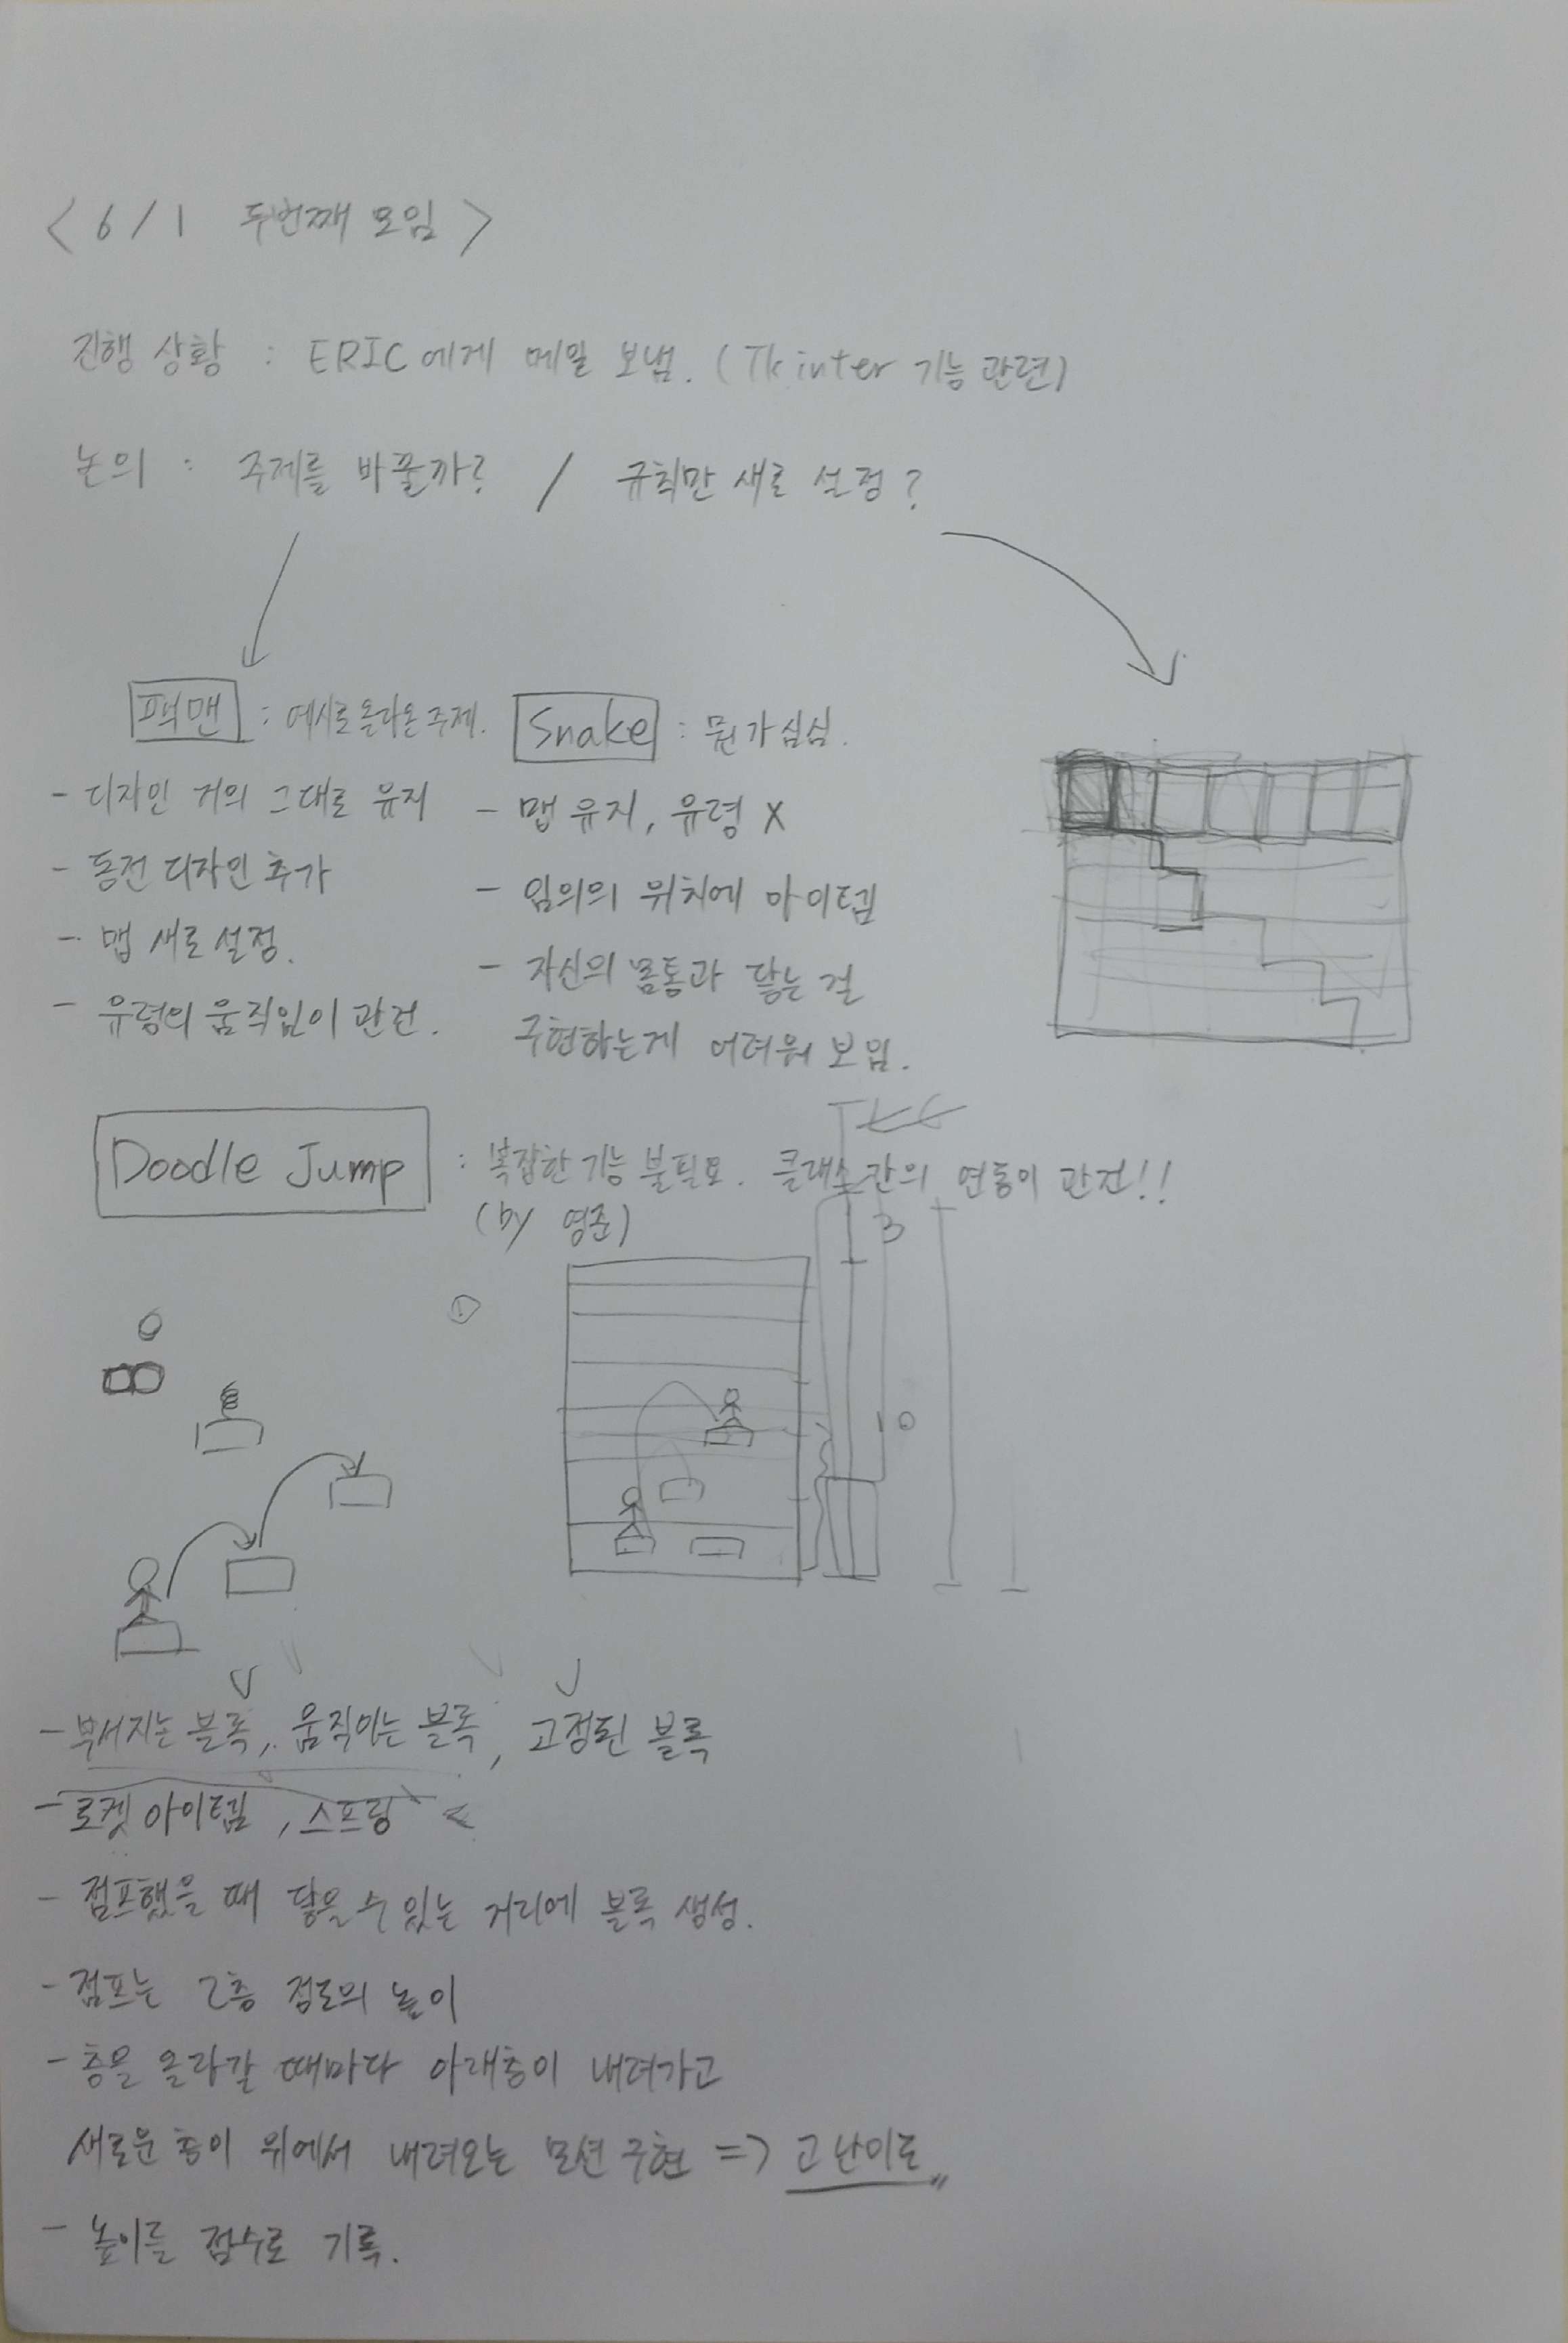 < 6 / 1 두번째 모임 >
진행 상황 : ERIC에게 메일 보냄. (Tkinter 기능 관련)
논의 : 주제를 바꿀까? / 규칙만 새로 설정?
팩맨 : 예시로 올라온 주제.
- 디자인 거의 그대로 유지
- 동전 디자인 추가
- 맵 새로 설정.
- 유령의 움직임이 관건.
Snake : 뭔가 심심.
- 맵 유지, 유령 X
- 임의의 위치에 아이템
- 자신의 몸통과 닿는 걸
구현하는게 어려워 보임.
Doodle Jump : 복잡한 기능 불필요. 클래스간의 연동이 관건!!
(by 영준)
3
10
- 부서지는 블록, 움직이는 블록, 고정된 블록
- 로켓 아이템, 스프링
- 점프했을 때 닿을 수 있는 거리에 블록 생성.
- 점프는 2층 정도의 높이
- 층을 올라갈 때마다 아래층이 내려가고
새로운 층이 위에서 내려오는 모션 구현 => 고난이도
- 높이를 점수로 기록.